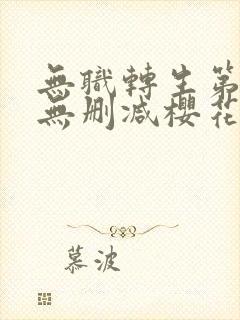 無職轉生第
無刪减櫻花
慕波